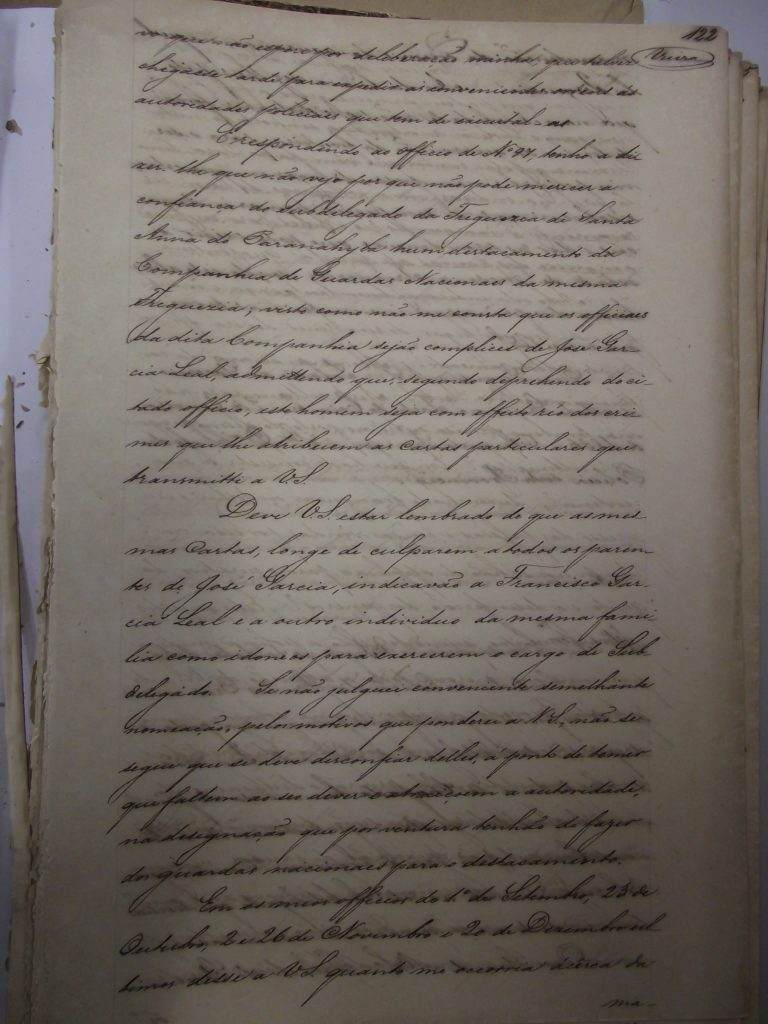 122
Vieira
vo que não espero por deliberação minha, que talvez
chegasse tarde para expedir as convenientes ordens ás
autoridades policiaes que tem de executal-as
Correspondendo ao officio de Nº 97, tenho a di
zer-lhe que não vejo por que não pode merecer a
confiança do subdelegado da Freguezia de Santa
Anna do Paranahyba hum destacamento da
Companhia de Guardas Nacionaes da mesma
Freguezia, visto como não me consta que os officiaes
da dita Companhia sejão complices de José Gar-
cia Leal, admettendo que, segundo deprehendo do ci-
tado officio, este homem seja com effeito réo dos cri-
mes que lhe atribuem as cartas particulares que
transmitti a V.S.
Deve V.S. estar lembrado de que as mes-
mas Cartas, longe de culparem a todos os paren-
tes de José Garcia, indicavão a Francisco Gar-
cia Leal e a outro individuo da mesma fami-
lia como idoneos para exercerem o cargo de Sub
delegado. Se não julguei conveniente semelhante
nomeação, pelos motivos que ponderei a V.S., não se
segue que se deve desconfiar delles, a ponto de temer
que faltem ao seo dever e atraiçoem a autoridade,
na designação que por ventura tenhão de fazer
dos guardas nacionaes para o destacamento.
Em os meus officios do 1º de Setembro, 23 de
Outubro, 2 e 26 de Novembro e 20 de Dezembro ul
timos disse a V.S. quanto me occorria ácerca da
ma-